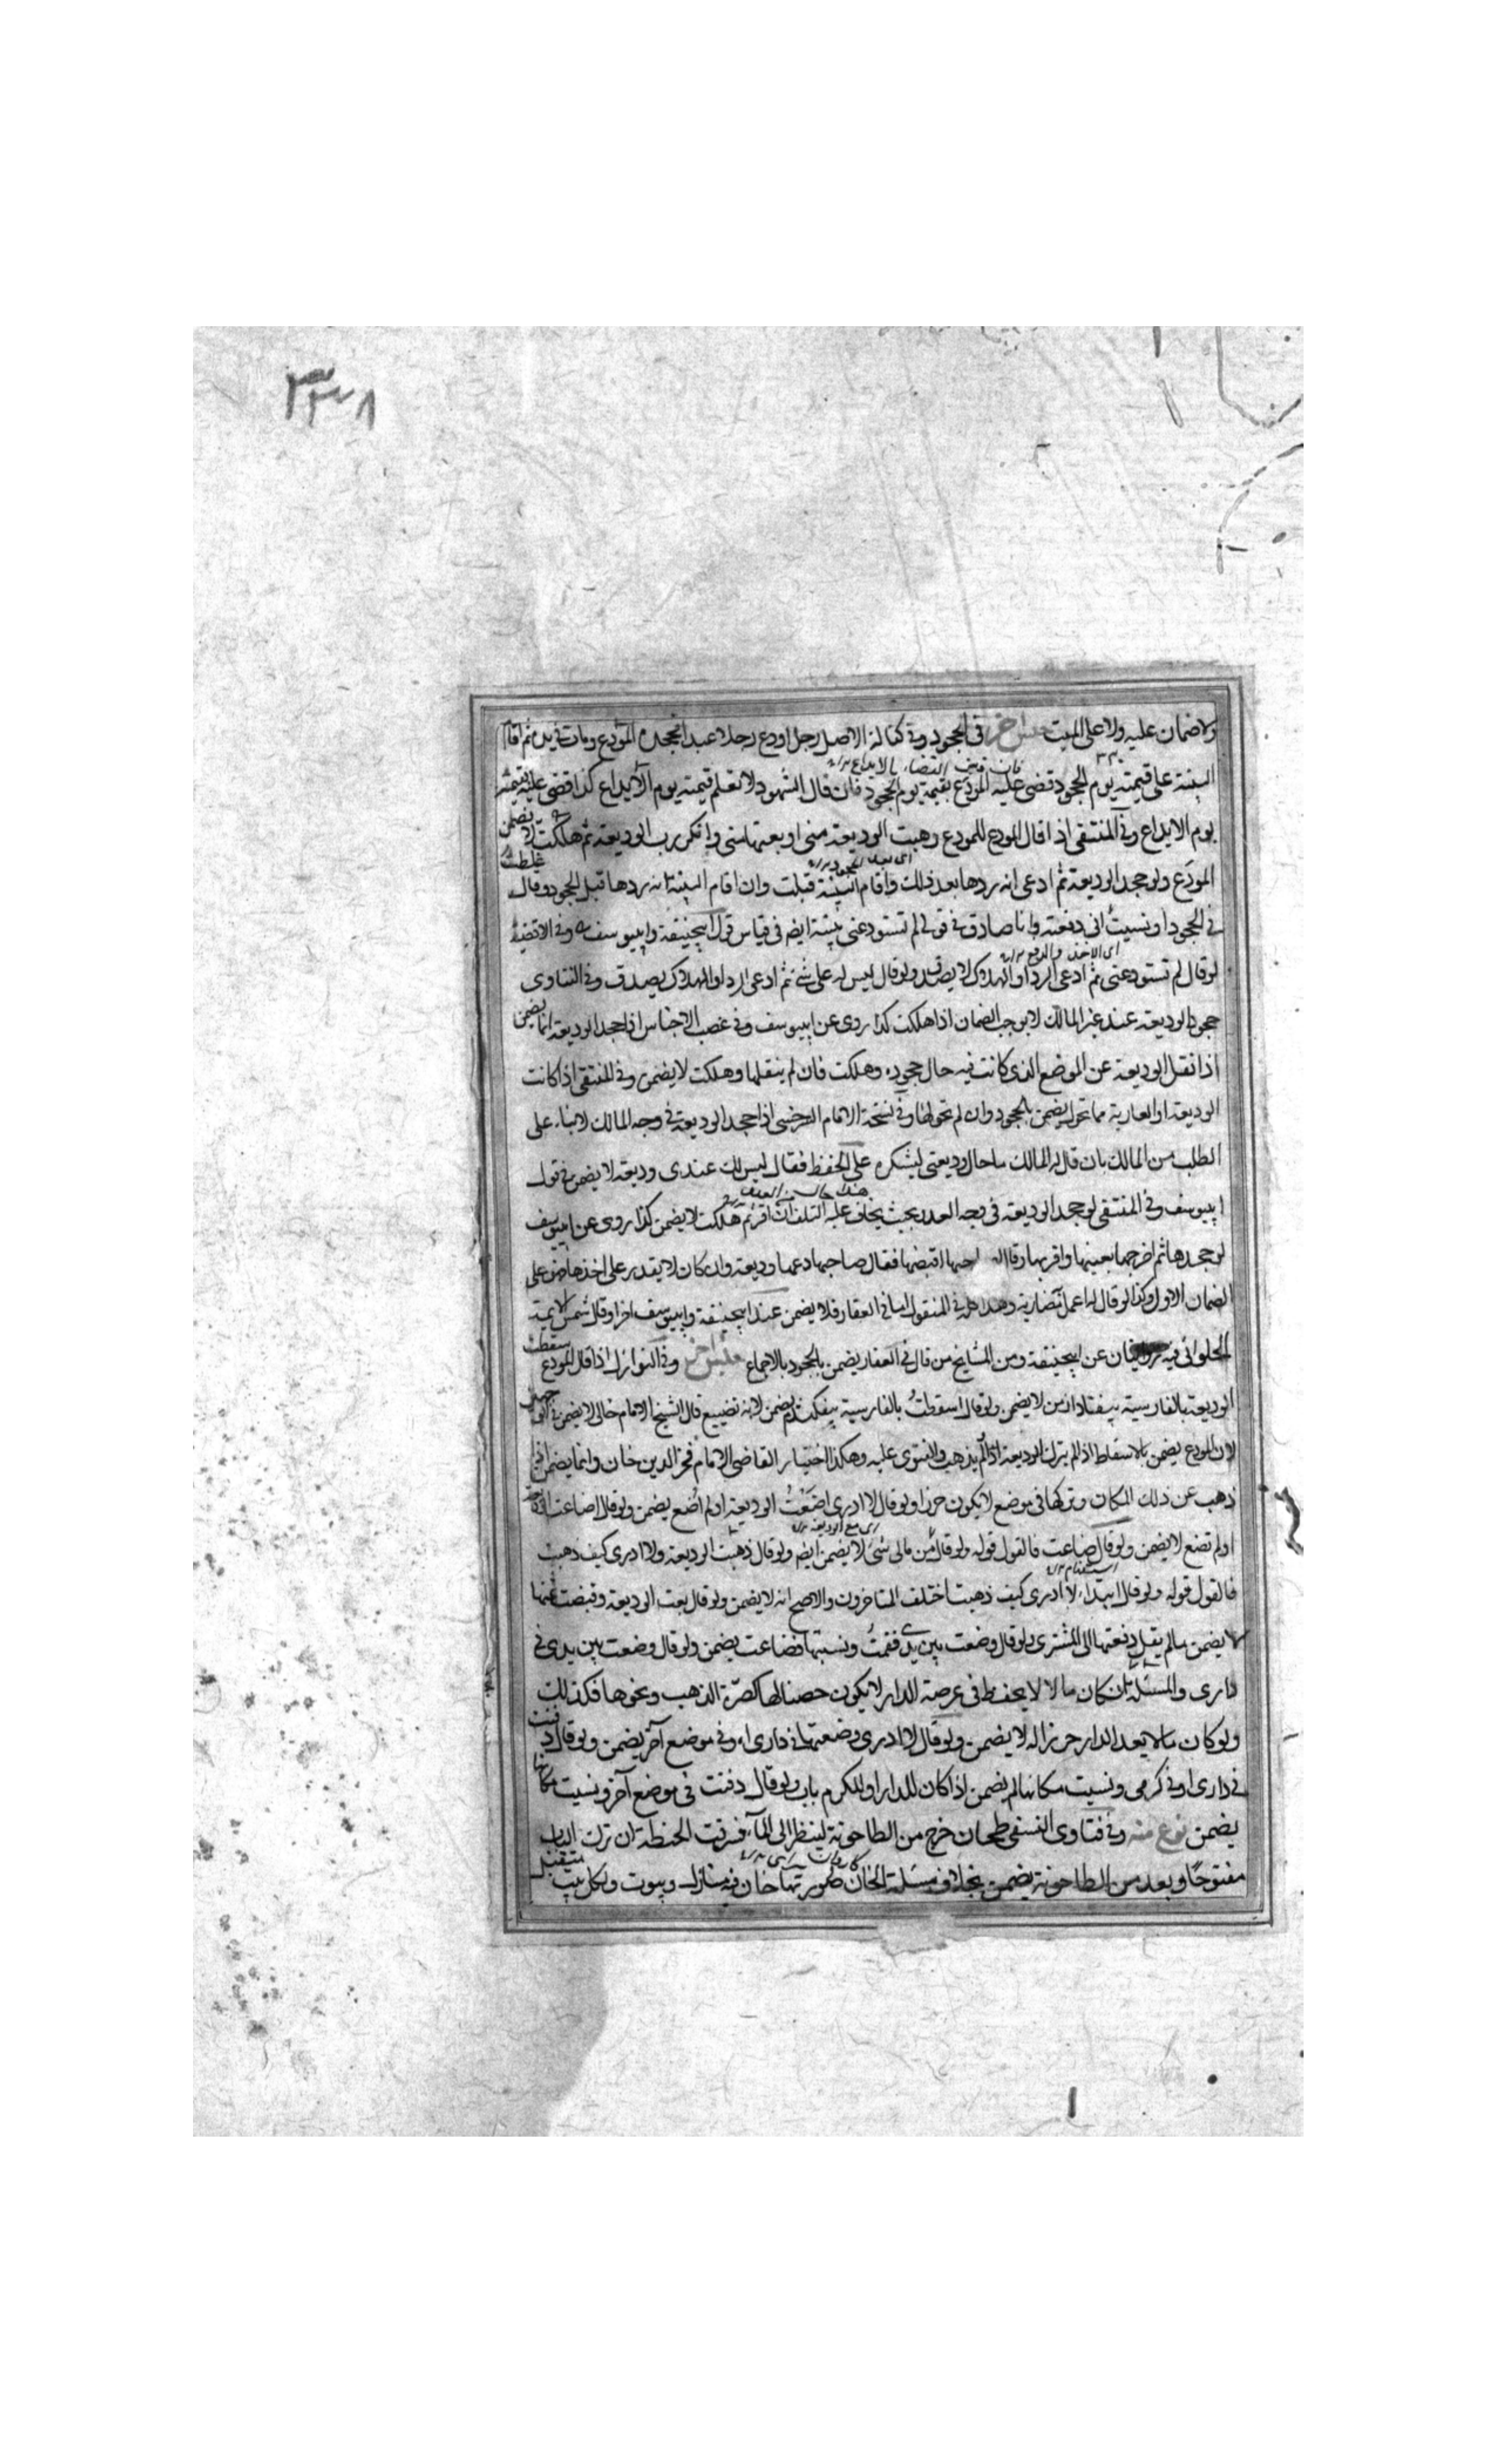 ٣٣٨
ولا ضمان عليه ولا على الميت جنس آخر في الجحود وفي كفالة الاصل رجل اودع رجلا عبدا فجحده المودع ومات في يده ثم اقام
البينة على قيمته يوم الجحود قضى عليه المودع بقيمة يوم الجحود فان قال الشهود لا نعلم قيمته يوم الايداع كذا قضى عليه بقيمته
يوم الايداع وفي المنتقى اذا قال المودع للمودع وهبت الوديعة مني او بعتها مني وانكر رب الوديعة ثم هلكت لا يضمن
المودَع ولو جحد الوديعة ثم ادعى انه ردها بعد ذلك واقام البينة قبلت وان اقام البينة انه ردها قبل الجحود وقال غلطت
في الجحود او نسيت اني دفعته وانا صادق في قولي لم تستودعني بينة ايضا في قياس قول ابيحنيفة وابييوسف وفي الاقضية
لو قال لم تستودعني ثم ادعى الرد او الهلاك لا يصدق ولو قال ليس له علي شئ ثم ادعى الرد او الهلاك يصدق وفي الفتاوى
جحود الوديعة عند غير المالك لا يوجب الضمان اذا هلكت كذا روى عن ابييوسف وفي غصب الاجناس اذا جحد الوديعة انما يضمن
اذا نقل الوديعة عن الموضع الذي كانت فيه حال جحوده وهلكت فان لم ينقلها وهلكت لا يضمن وفي المنتقى اذا كانت
الوديعة او العارية مما تحول يضمن بالجحود وان لم تحولها وفي نسخة الامام السرخسي اذا جحد الوديعة في وجه المالك لا بناء على
الطلب من المالك بان قال له المالك ما حال وديعتي ليشكره على الحفظ فقال ليس لك عندي وديعة لا يضمن في قول
ابييوسف وفي المنتقى لو جحد الوديعة في وجه العدو بحيث يخاف عليه التلف ان اقر ثم هلكت لا يضمن كذا روى عن ابييوسف
لو جحدها ثم اخرجها بعينها واقر بها وقال لصاحبها اقبضها فقال صاحبها دعها وديعة وان كان لا يقدر على اخذها فهي على
الضمان الاول وكذا لو قال له اعمل بمضاربة وهذا كله في المنقول اما في العقار فلا يضمن عند ابيحنيفة وابييوسف آخرا وقال شمس الائمة
الحلواني فيه روايتان عن ابيحنيفة ومن المشايخ من قال في العقار يضمن بالجحود بالاجماع جنس آخر وفي النوازل اذا قال المودع سقطت
الوديعة بالفارسية بيفتاد از من لا يضمن ولو قال اسقطتُ بالفارسية بيفكندم يضمن لانه تضييع قال الشيخ الامام خالي لا يضمن في الوجهين
لان المودع يضمن بالاسقاط اذا لم يترك الوديعة اذا لم يذهب والفتوى عليه وهكذا اختيار القاضي الامام فخر الدين خان وانما يضمن اذا
ذهب عن ذلك المكان وتركها في موضع لا يكون حرزا ولو قال لا ادري اضعتُ الوديعة او لم اضع يضمن ولو قال اضاعت الوديعة
او لم تضع لا يضمن ولو قال ضاعت فالقول قوله ولو قال من مالي شئ لا يضمن ايضا ولو قال ذهبت الوديعة ولا ادري كيف ذهبت
فالقول قوله ولو قال ابتداء لا ادري كيف ذهبت اختلف المتاخرون والاصح انه لا يضمن ولو قال بعت الوديعة وقبضت ثمنها
لا يضمن ما لم يقل دفعتها الى المشتري ولو قال وضعت بين يدي فقمتُ ونسيتها فضاعت يضمن ولو قال وضعت بين يدي في
داري والمسئلة بان كان مالا لا يحفظ في عرصة الدار لا يكون حصنا لها كصرّة الذهب ونحوها فكذلك
ولو كان مالا يعد الدار حرزا له لا يضمن ولو قال لا ادري وضعتها في داري او في موضع آخر يضمن ولو قال دفنت
في داري او في كرمي ونسيت مكانها لم يضمن اذا كان للدار او للكرم باب ولو قال دفنت في موضع آخر ونسيت مكانها
يضمن نوع منه وفي فتاوى النسفي طحان خرج من الطاحونة لينظر الى الماء فسرقت الحنطة ان ترك الباب
مفتوحًا وبعد من الطاحونة يضمن بخلاف مسئلة الخان صورتها خان فيه منازل وبيوت ولكل بيت مقفل